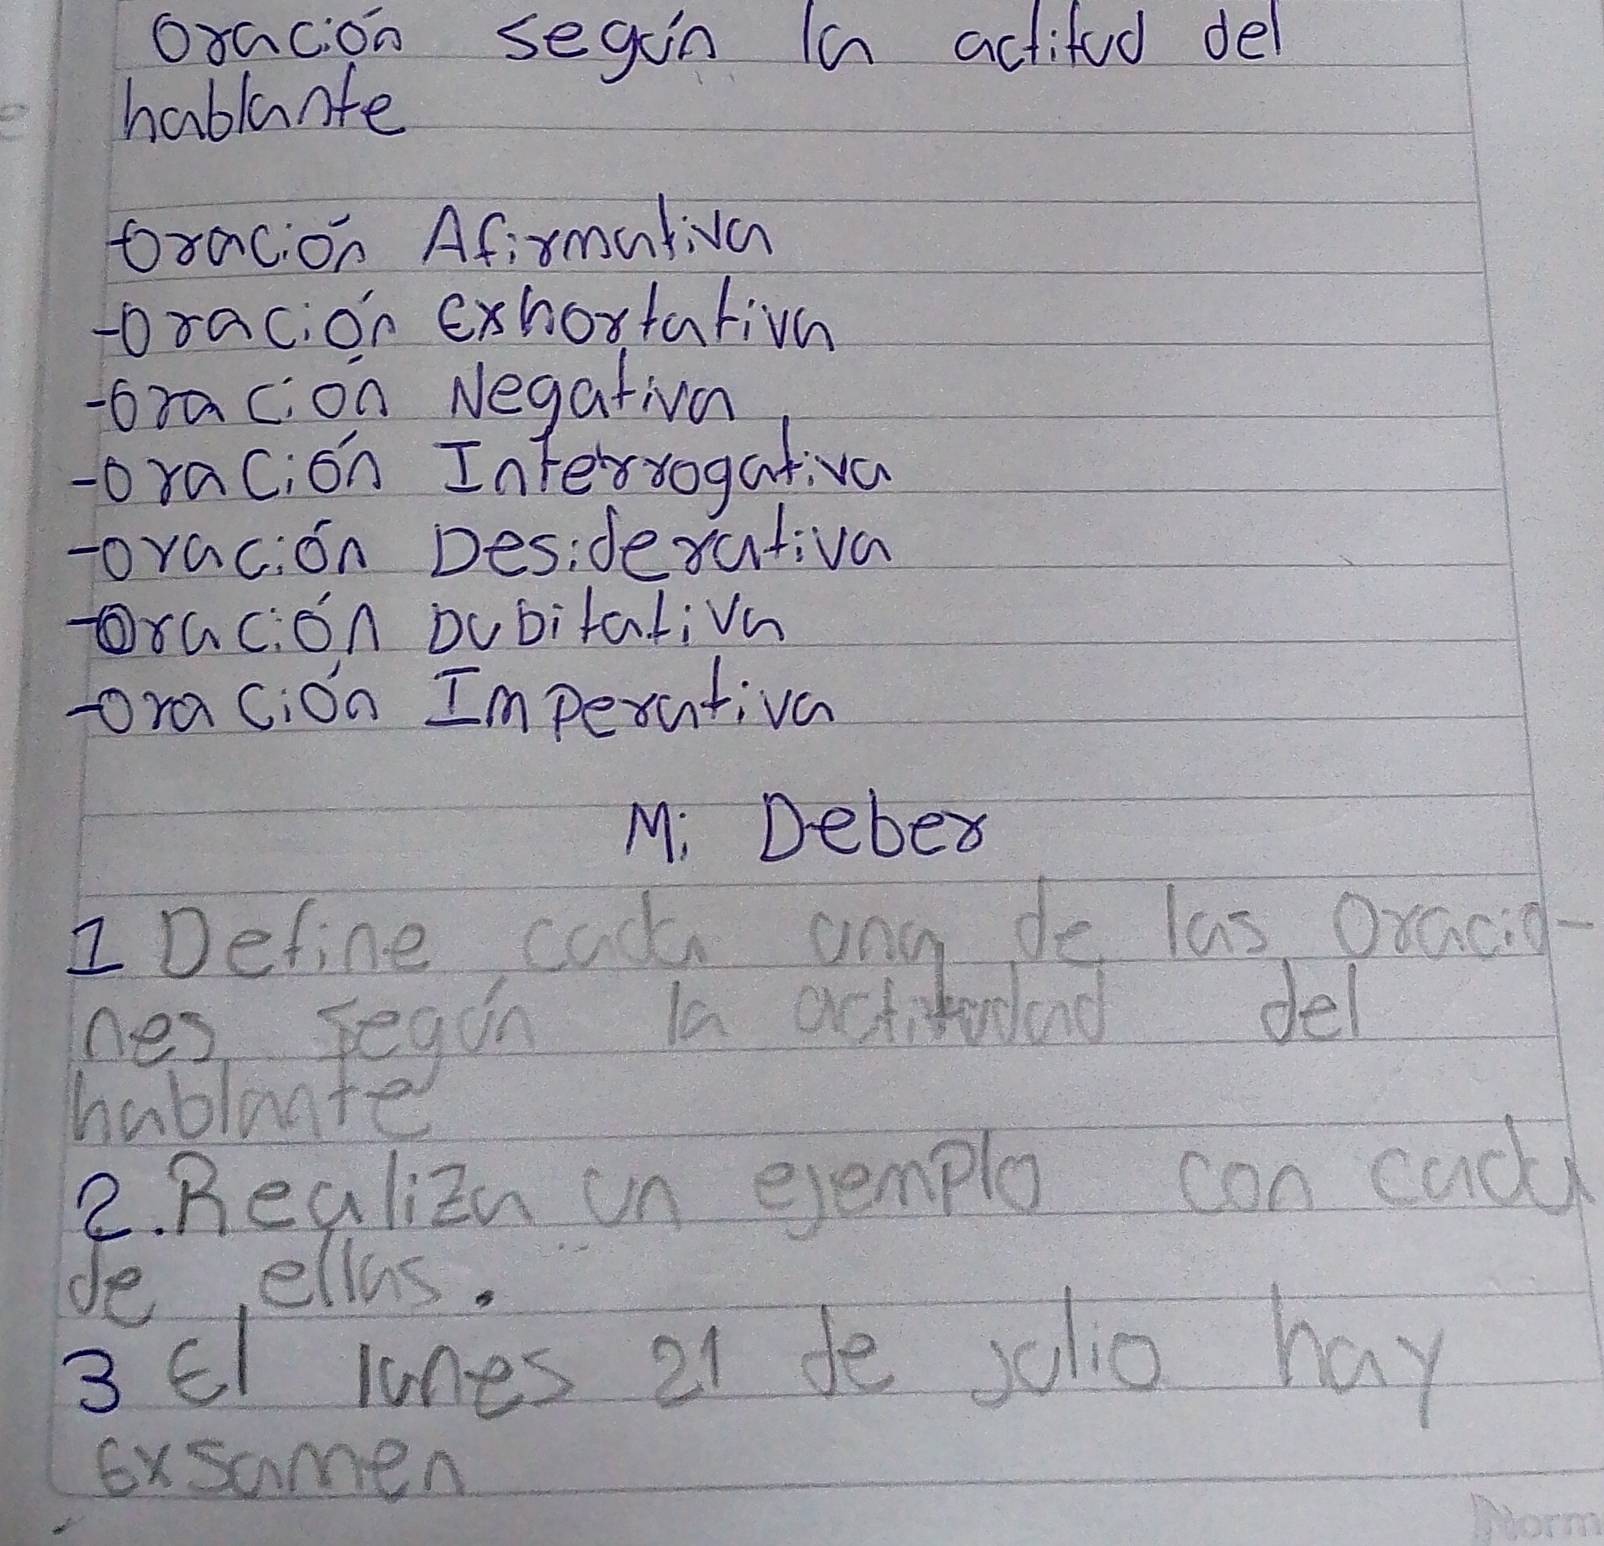 Oración según la actitud del
hablante
-Oración Afirmativa
-Oración Exhortativa
-Oración Negativa
-Oración Interrogativa
-Oración Desiderativa
-Oración Dubitativa
-Oración Imperativa
Mi Deber
1 Define cada una de las Oracio-
nes según la del
hablante
2. Realiza un ejemplo con cada
de ellas.
3 El lunes 21 de julio hay
Exsamen
Norm